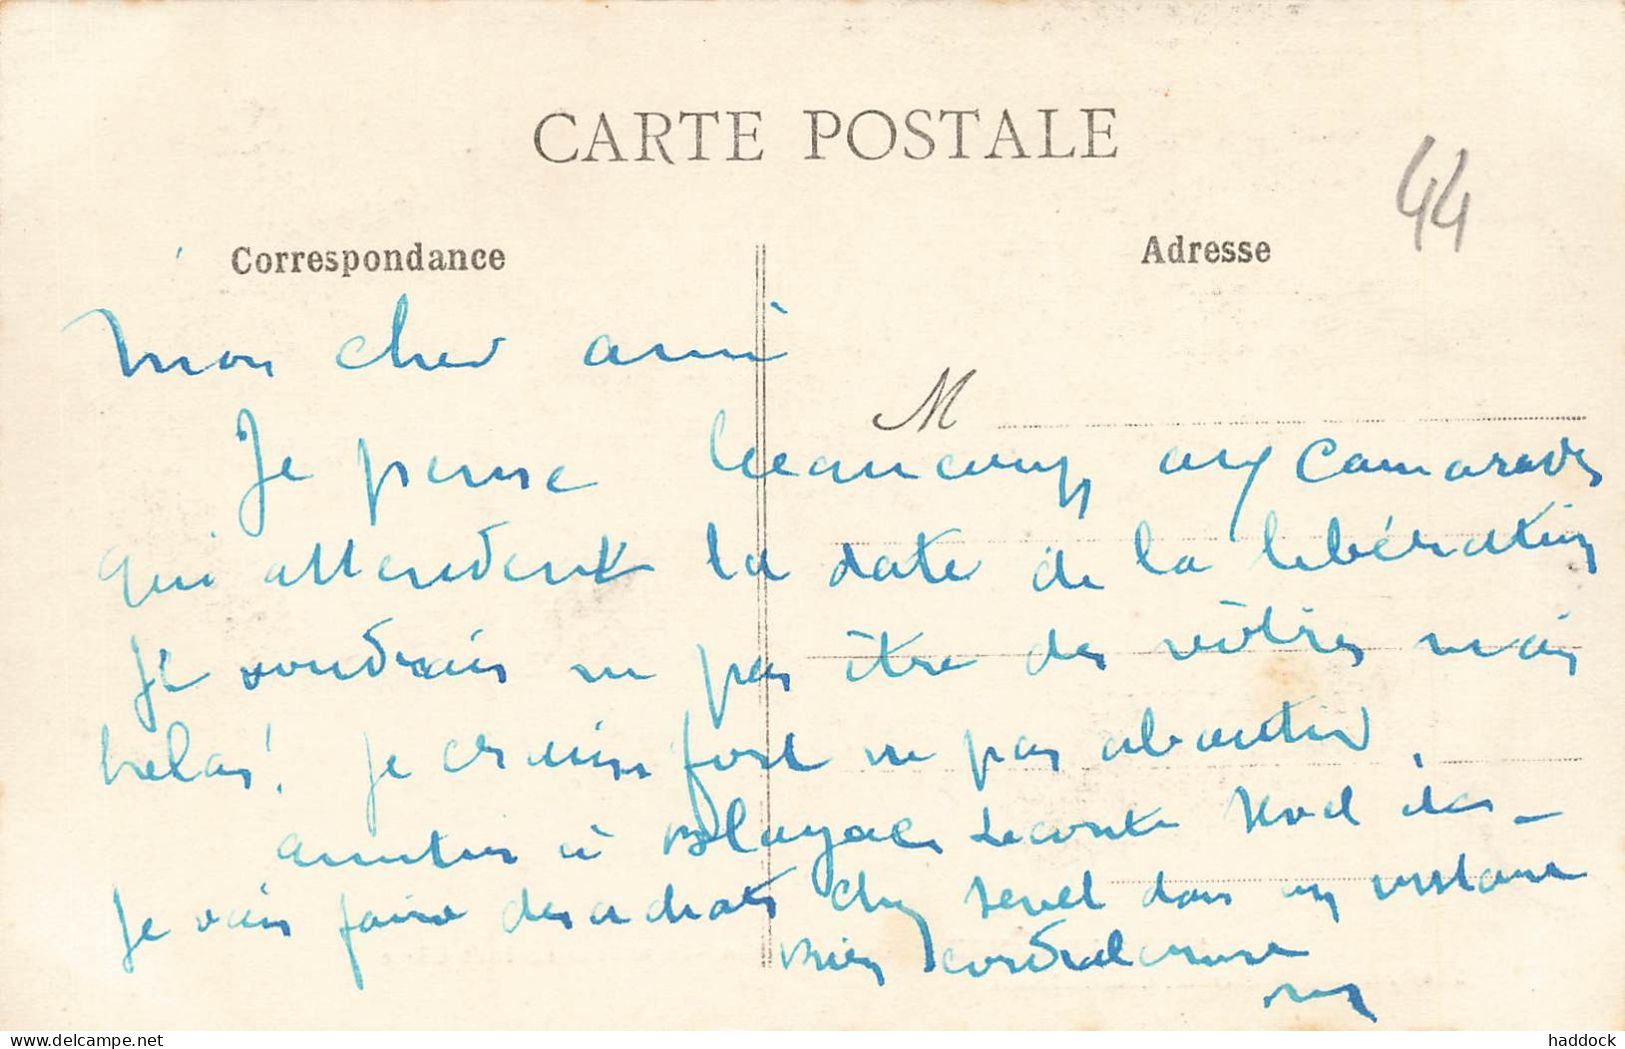 CARTE POSTALE
44
Correspondance
Adresse
Mon cher ami
M
Je pense beaucoup aux camarades
qui attendent la date de la libération
Je voudrais ne pas être des vôtres mais
helas! je crains fort ne pas aboutir.
amitiés à Lecomte
Je vais faire des achats chez dans un instant
Bien cordialement
delcampe.net
haddock